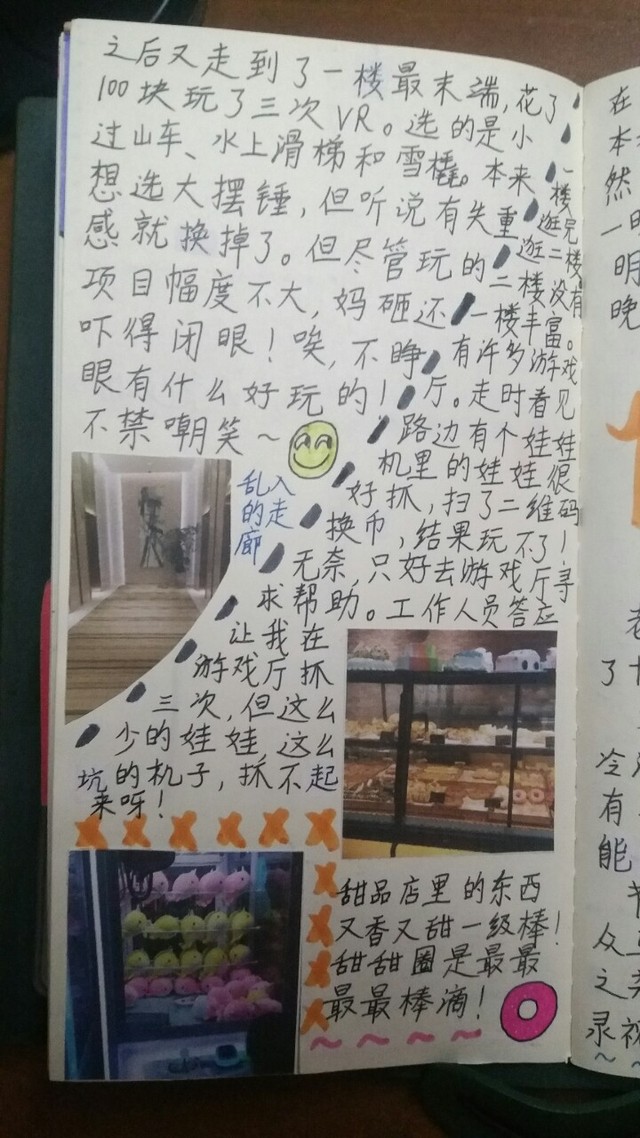 之后又走到了一楼最末端,花了
100块玩了三次VR。选的是小
过山车、水上滑梯和雪橇。本来
想选大摆锤,但听说有失重
感就换掉了。但尽管玩的
项目幅度不大,妈砸还
吓得闭眼!唉,不睁
眼有什么好玩的!
不禁嘲笑~
一
楼
逛完
逛二楼
二楼没有
一楼丰富。
有许多游戏
厅。走时看见
路边有个娃娃
机里的娃娃很
好抓,扫了二维码
换币,结果玩不了!
无奈,只好去游戏厅寻
求帮助。工作人员答应
让我在
游戏厅抓
三次,但这么
少的娃娃,这么
坑的机子,抓不起
来呀!
乱入
的走
廊
甜品店里的东西
又香又甜一级棒!
甜甜圈是最最
最最棒滴!
在
本
然
一
明
晚
了
冷
有
能
众
之
录